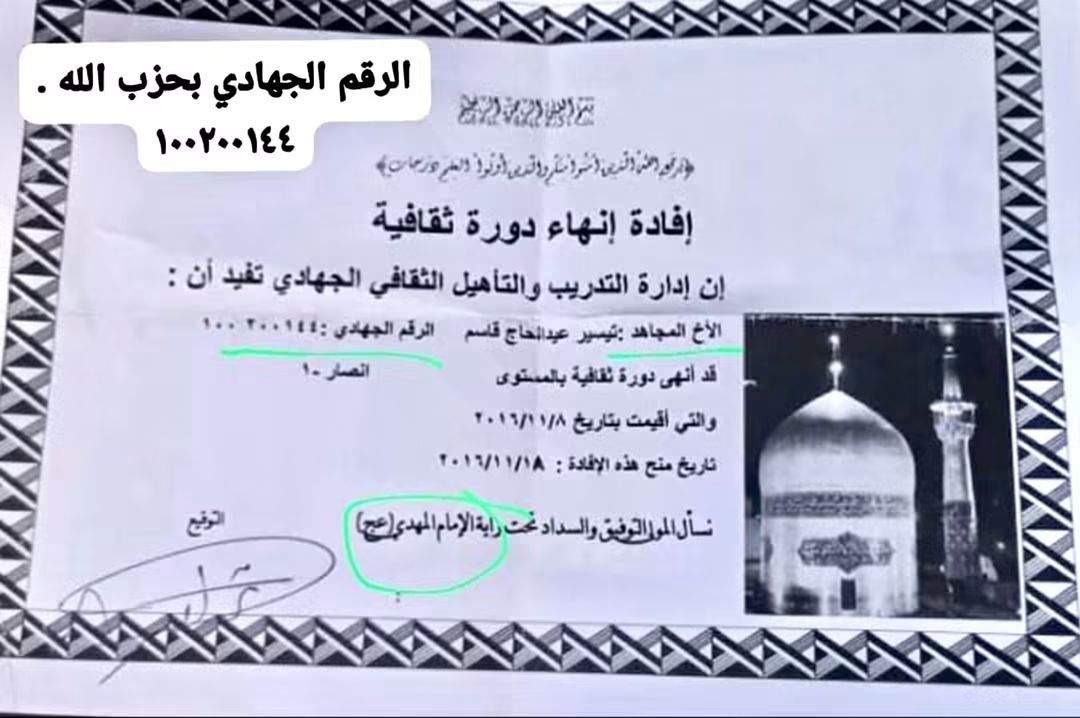 الرقم الجهادي بحزب الله .
١٠٠٢٠٠١٤٤
بسم الله الرحمن الرحيم
﴿يرفع الله الذين آمنوا منكم والذين أوتوا العلم درجات﴾
إفادة إنهاء دورة ثقافية
إن إدارة التدريب والتأهيل الثقافي الجهادي تفيد أن :
الأخ المجاهد :تيسير عبدالحاج قاسم الرقم الجهادي :٢٠٠١٤٤ ١٠٠
قد أنهى دورة ثقافية بالمستوى انصار -١
والتي أقيمت بتاريخ ٢٠١٦/١١/٨
تاريخ منح هذه الإفادة : ٢٠١٦/١١/١٨
نسأل المولى التوفيق والسداد تحت راية الإمام المهدي (عج)
التوقيع